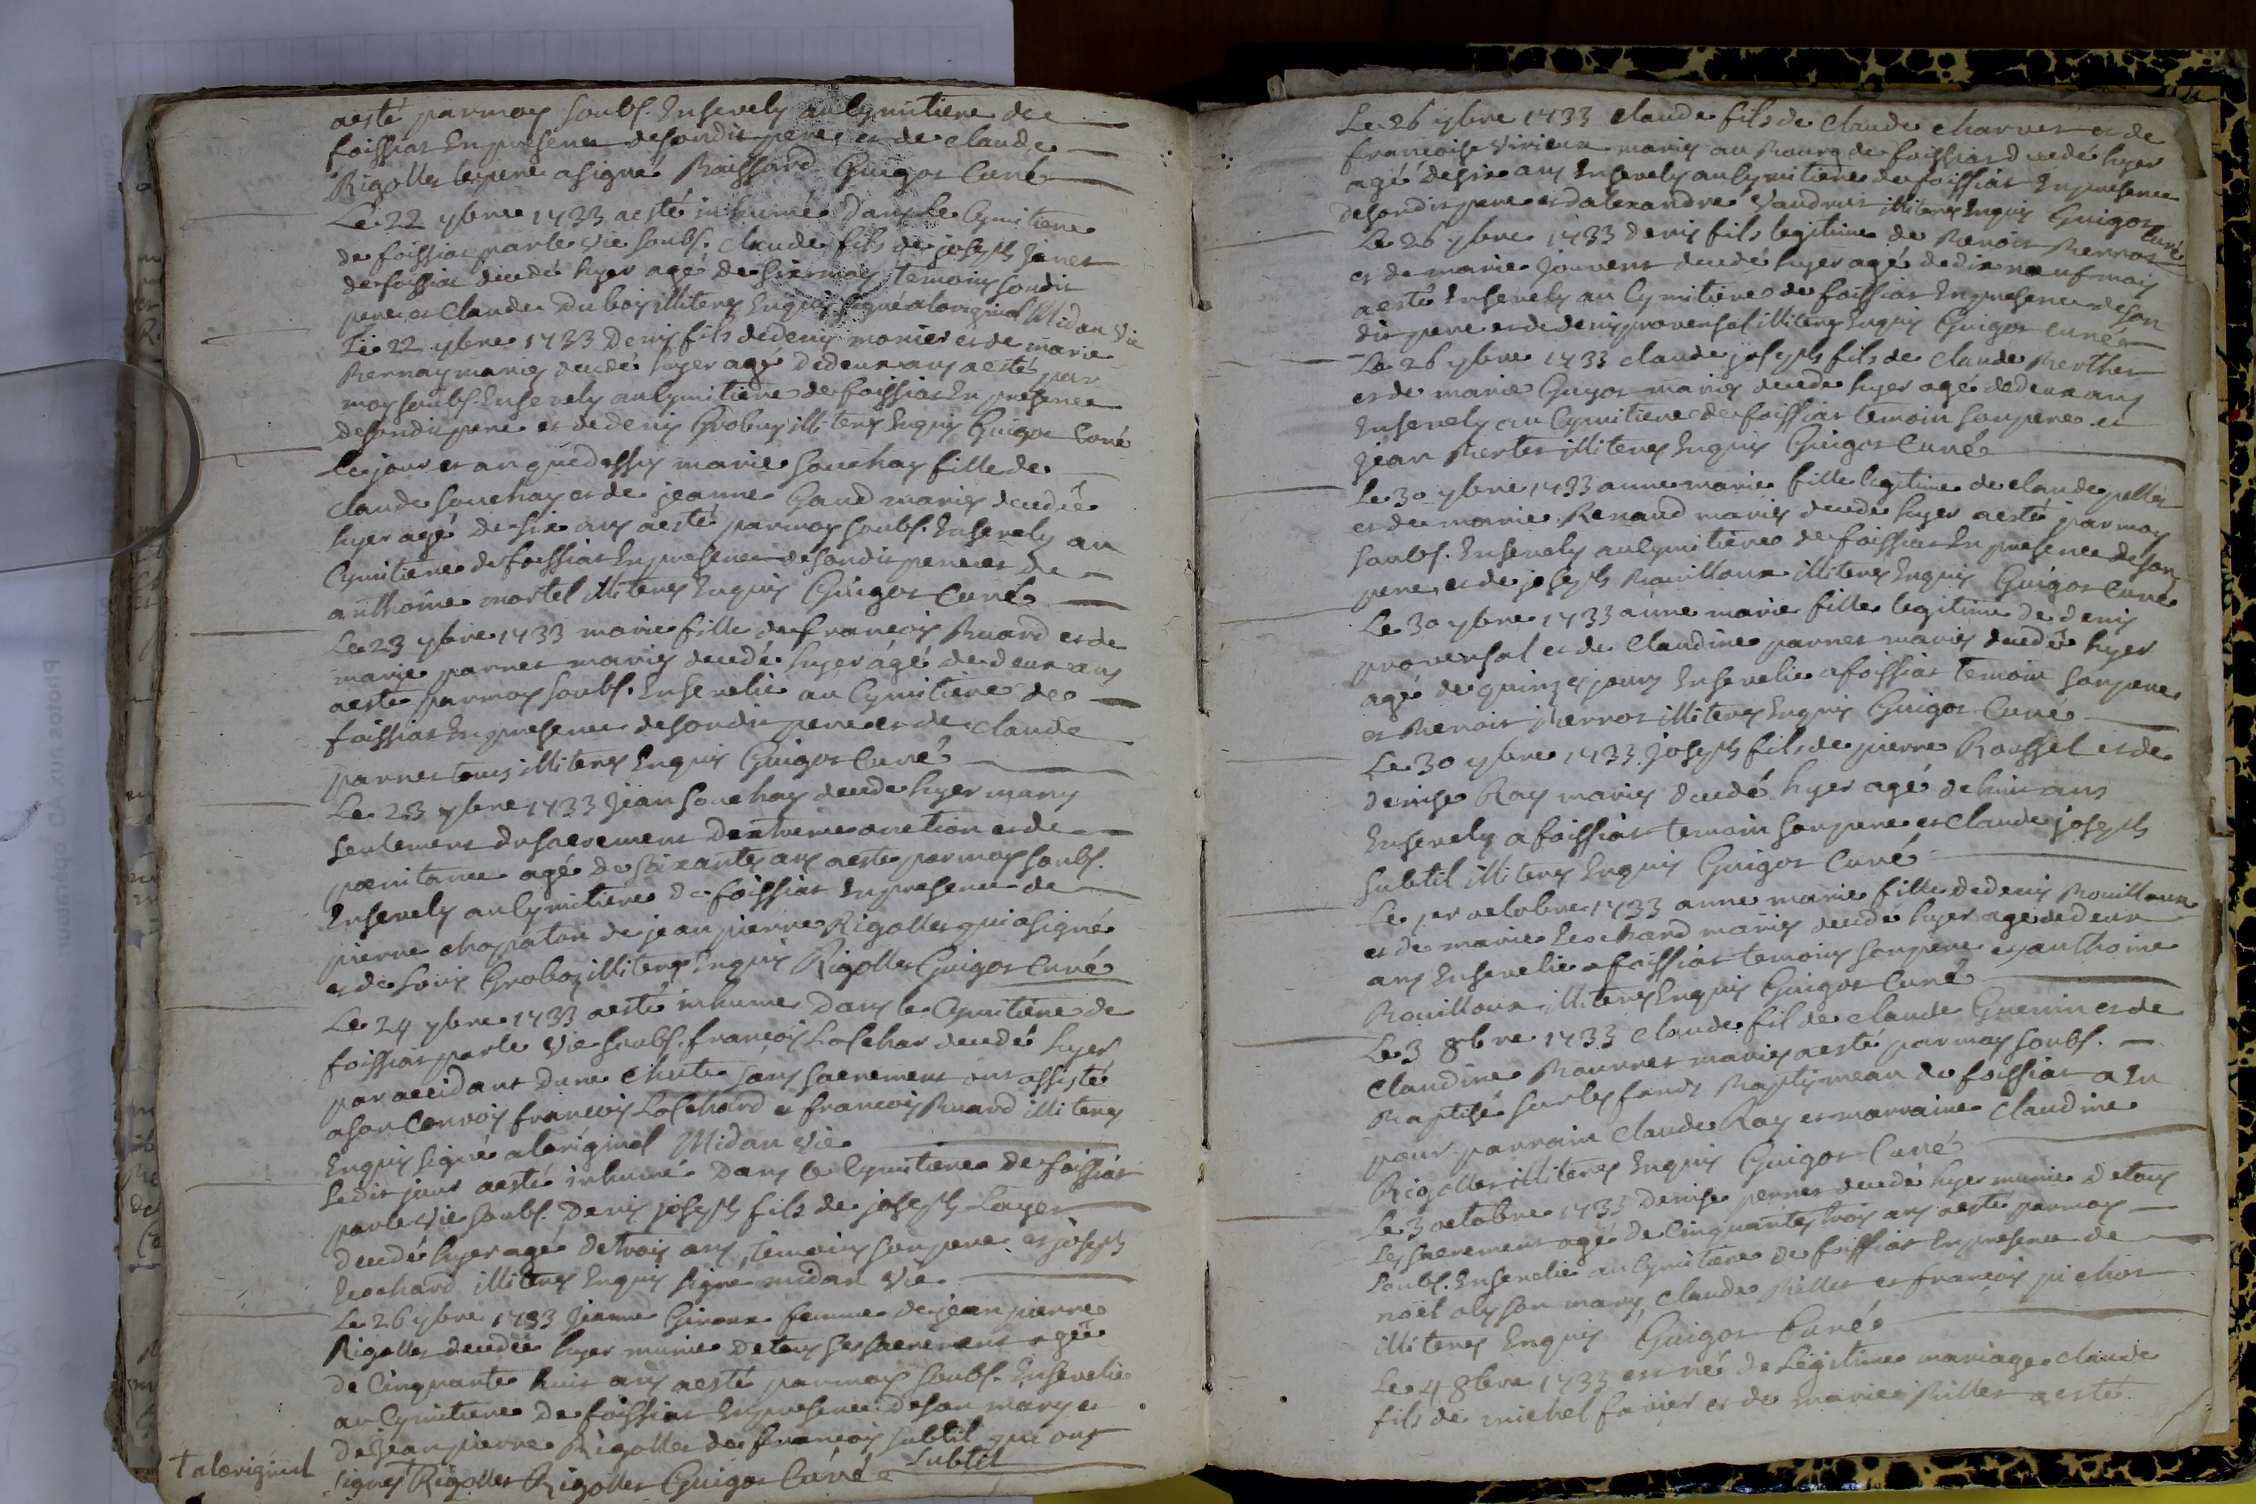 aesté par moy soubs. Ensevely au Cymitiere de
foissiat En presence de sondit pere et de claude
Rigollet le pere a signé Raissard Guigot Curé
Le 22 ybre 1733 aesté inhumé Dans le Cymitiere
de foissiat par le vie soubs. claude fils de joseph janet
de foissiat decedé hyer agé de six mois temoins sondit
pere et Claude Dubois illiterés Enquis signé aloriginal Midan vie
Le 22 ybre 1733 Denis fils de denis monier et de marie
Bernay mariés decedé hyer agé de deux ans aesté par
moy soubs. Ensevely au Cymitiere de foissiat En presence
de sondit pere et de denis Grobuy illiterés Enquis Guigot Curé
le jour et an que dessus marie souchay fille de
Claude souchay et de jeanne Gaud mariés decedé
hyer agé de six ans aesté par moy soubs. Ensevely au
Cymitiere de foissiat En presence de sondit pere et de
anthoine mortel illiterés Enquis Guigot Curé
Le 23 ybre 1733 marie fille de françois Ruard et de
marie parnet mariés decedé hyer agé de deux ans
aesté par moy soubs. Ensevelie au Cymitiere de
foissiat En presence de sondit pere et de claude
parnet tous illiterés Enquis Guigot Curé
Le 23 ybre 1733 jean souchay decedé hyer muny
seulement du sacrement Dextreme onction et de
poenitance agé de soixante ans aesté par moy soubs.
Ensevely au Cymitiere de foissiat En presence de
pierre chapaton de jean pierre Rigollet qui a signé
et de Louis Groboz illiterés Enquis Rigollet Guigot Curé
Le 24 ybre 1733 aesté inhumé Dans le Cymitiere de
foissiat par le vie soubs. françois Lachar decedé hyer
par accidant dune chute sans sacrement ont assisté
a son Convoy françois Lachard et françois Ruard illiterés
Enquis signé aloriginal Midan vie
Ledit jour aesté inhumé Dans le Cymitiere de foissiat
par le vie soubs. Denis joseph fils de joseph Layer
decedé hyer agé de trois ans, temoins son pere et joseph
Ecochard illiterés Enquis signé midan vie
Le 26 ybre 1733 jeanne Giroux femme de jean pierre
Rigollet decedée hyer munie de tous ses sacrement agée
de Cinquante huit ans aesté par moy soubs. Ensevelie
au Cymitiere de foissiat En presence de son mary et
De jean pierre Rigollet de françois subtil qui ont
† aloriginal
signés† Rigollet Rigollet Guigot Curé Subtil
Le 26 ybre 1733 claude fils de Claude charvet et de
françoise Virieux mariés au Bourg de foissiat decedé hyer
agé de six ans Ensevely au Cymitiere de foissiat En presence
de sondit pere et dalexandre Vaudrut illiterés Enquis Guigot Curé
Le 26 ybre 1733 denis fils legitime de Benoit Perrot
et de marie jouvent decedé hyer agé de dix neuf mois
aesté Ensevely au Cymitiere de foissiat En presence de son
dit pere et de denis provensal illiterés Enquis Guigot curé
Le 26 ybre 1733 claude joseph fils de Claude Berthet
et de marie Guyot mariés decedé hyer agé de deux ans
Ensevely au Cymitiere de foissiat temoin son pere et
jean Bertet illiterés Enquis Guigot Curé
Le 30 ybre 1733 anne marie fille legitime de claude pellet
et de marie Renaud mariés decedé hyer aesté par moy
soubs. Ensevely au Cymitiere de foissiat En presence de son
pere et de joseph Bouilloux illiterés Enquis Guigot Curé
Le 30 ybre 1733 anne marie fille legitime de denis
provensal et de Claudine parnet mariés decedé hyer
agé de quinzes jours Ensevelie a foissiat temoin son pere
et Benoit pernot illiterés Enquis Guigot Curé
Le 30 ybre 1733 joseph fils de pierre Roussel et de
denise Ray mariés decedé hyer agé de huit ans
Ensevely a foissiat temoin son pere et claude joseph
Subtil illiterés Enquis Guigot Curé
Le per octobre 1733 anne marie fille de denis Bouilloux
et de marie Ecochard mariés decedé hyer agé de deux
ans Ensevelie a foissiat temoins son pere et anthoine
Bouilloux illiterés Enquis Guigot Curé
Le 3 8bre 1733 Claude fil de claude Guerin et de
Claudine Bounet mariés aesté par moy soubs.
Baptisé sur les fonds Baptismeau de foissiat a Eu
pour parrain Claude Ray et marraine Claudine
Rigollet illiterés Enquis Guigot Curé
Le 3 octobre 1733 denise pernet decedé hyer munie de tous
les sacrement agé de Cinquantes trois ans aesté par moy
soubs. Ensevelie au Cymitiere de foissiat En presence de
noël aly son mary, claude Billet et françois pichot
illiterés Enquis Guigot Curé
Le 4 8bre 1733 est né de Légitime mariage claude
fils de michel favier et de marie Billet aesté